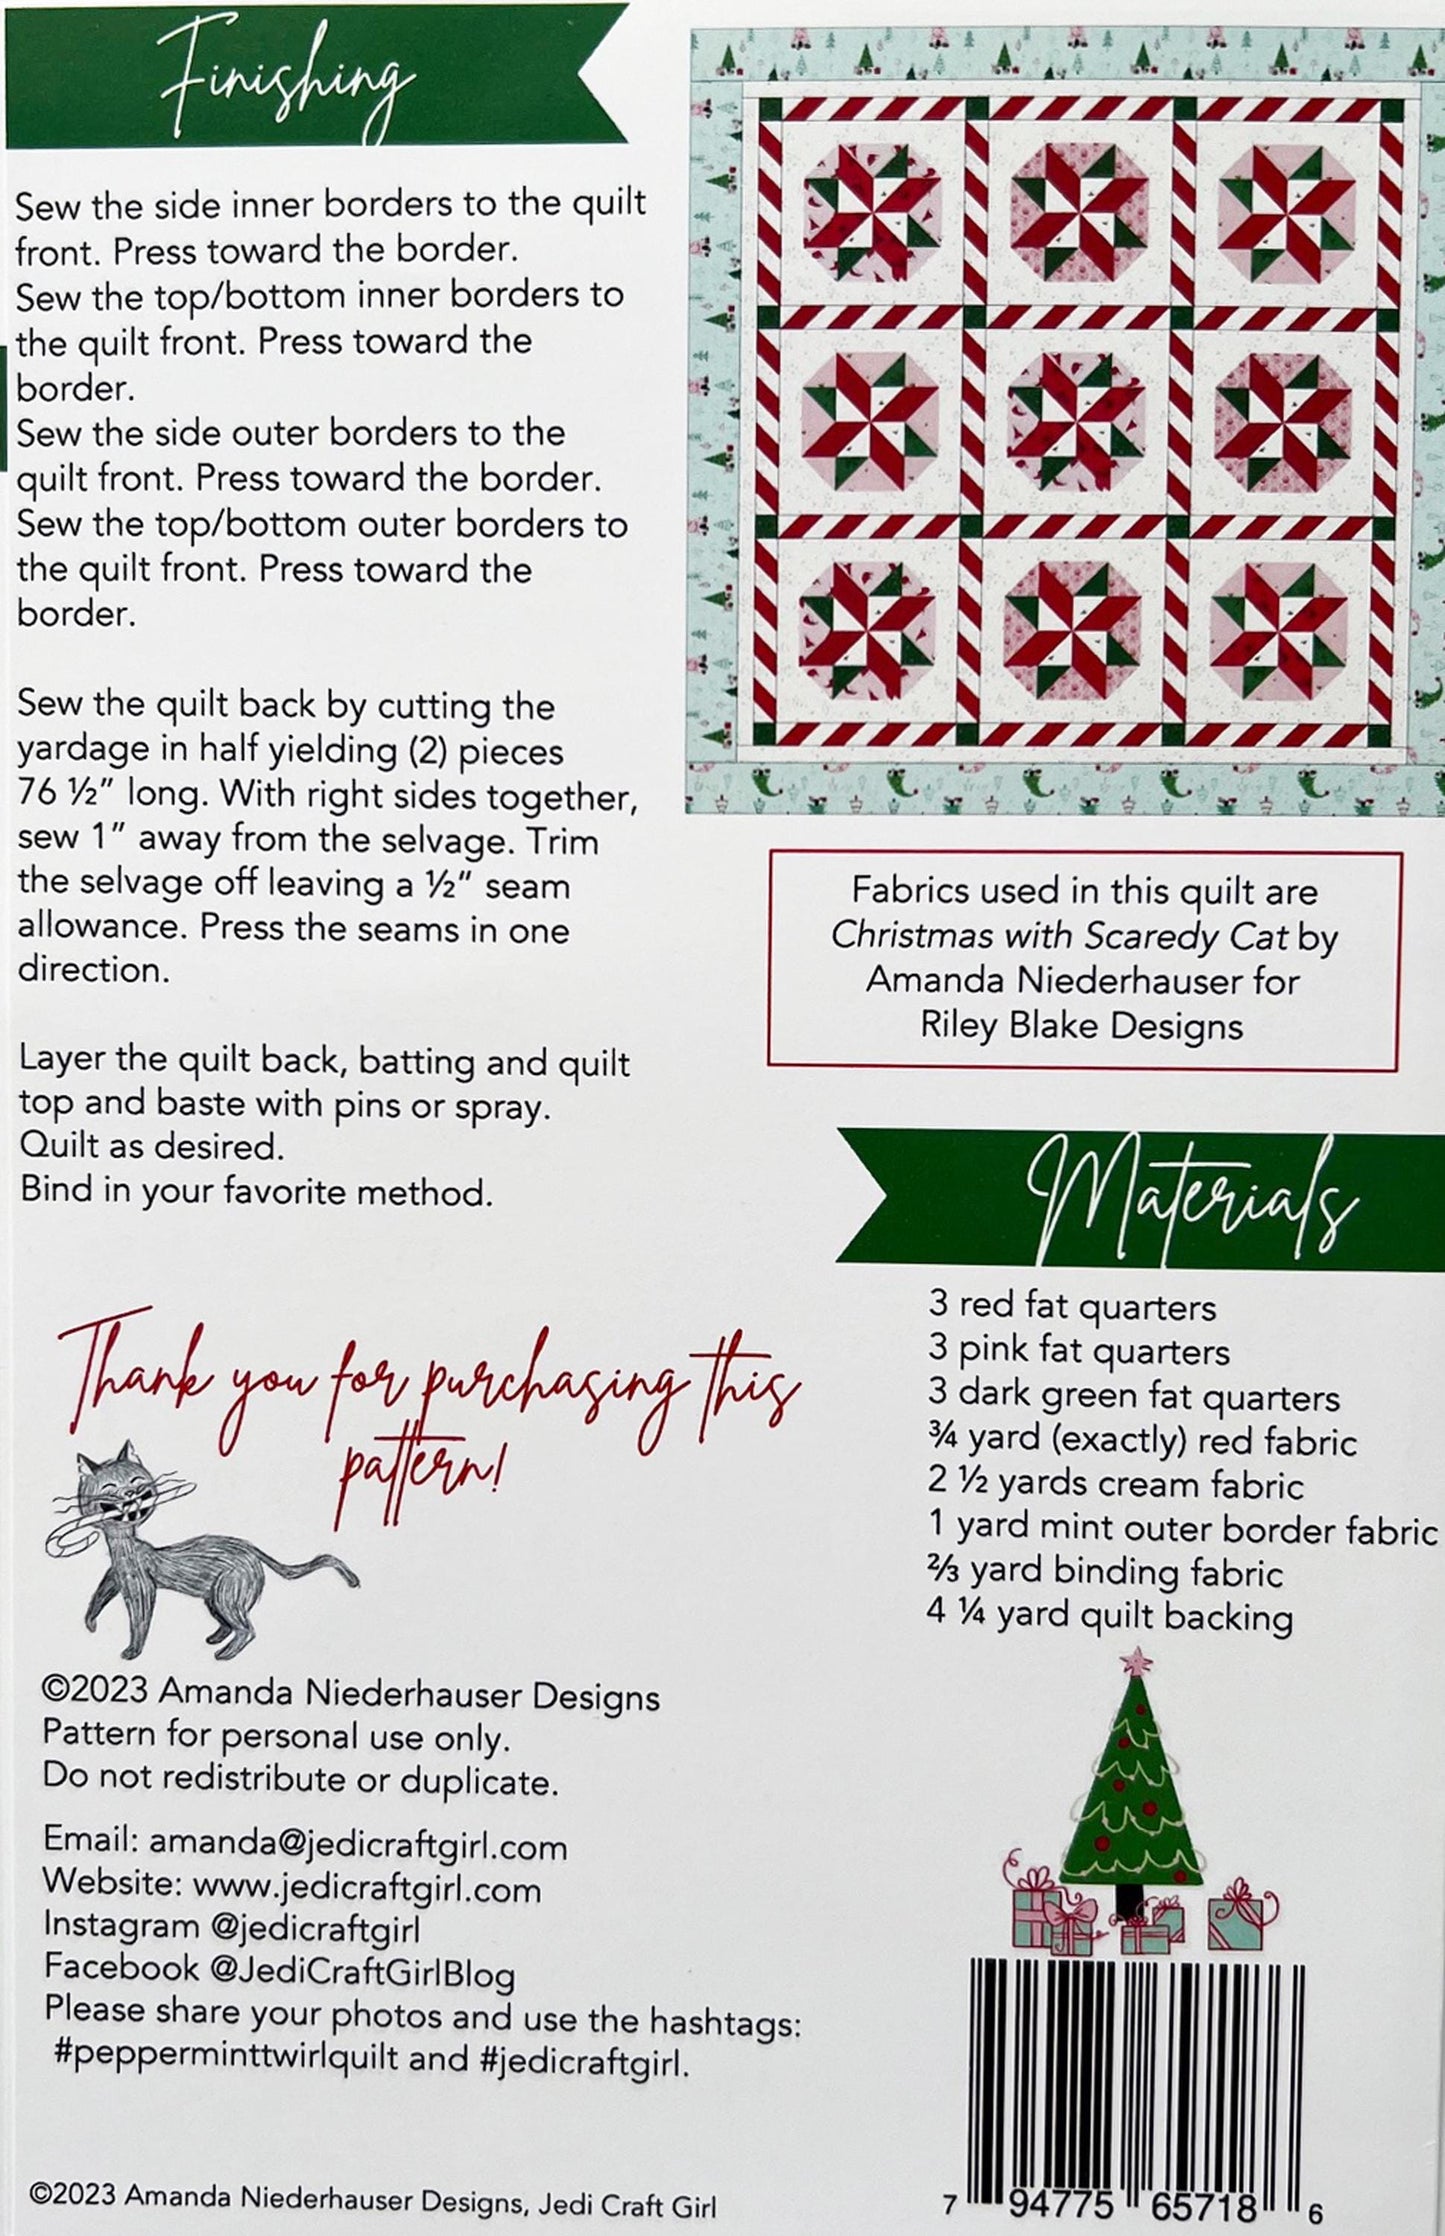 Finishing
Sew the side inner borders to the quilt
front. Press toward the border.
Sew the top/bottom inner borders to
the quilt front. Press toward the
border.
Sew the side outer borders to the
quilt front. Press toward the border.
Sew the top/bottom outer borders to
the quilt front. Press toward the
border.
Sew the quilt back by cutting the
yardage in half yielding (2) pieces
76 ½" long. With right sides together,
sew 1" away from the selvage. Trim
the selvage off leaving a ½" seam
allowance. Press the seams in one
direction.
Layer the quilt back, batting and quilt
top and baste with pins or spray.
Quilt as desired.
Bind in your favorite method.
Fabrics used in this quilt are
Christmas with Scaredy Cat by
Amanda Niederhauser for
Riley Blake Designs
Materials
3 red fat quarters
3 pink fat quarters
3 dark green fat quarters
¾ yard (exactly) red fabric
2 ½ yards cream fabric
1 yard mint outer border fabric
⅔ yard binding fabric
4 ¼ yard quilt backing
Thank you for purchasing this
pattern!
©2023 Amanda Niederhauser Designs
Pattern for personal use only.
Do not redistribute or duplicate.
Email: amanda@jedicraftgirl.com
Website: www.jedicraftgirl.com
Instagram @jedicraftgirl
Facebook @JediCraftGirlBlog
Please share your photos and use the hashtags:
#pepperminttwirlquilt and #jedicraftgirl.
©2023 Amanda Niederhauser Designs, Jedi Craft Girl
7 94775 65718 6